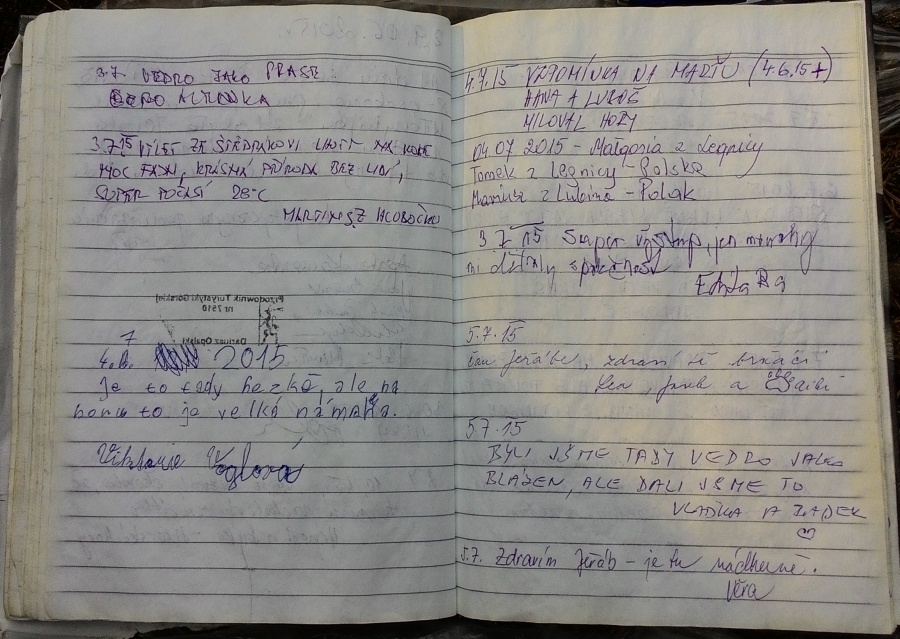 3.7. VEDRO JAKO PRASE
3.7.15 VÝLET ZE
MOC FAJN, KRÁSNÁ PŘÍRODA BEZ LIDÍ,
SUPER POČASÍ 28°C
MARTINA
Przodownik Turystyki Górskiej
nr 7910
Dariusz Opalski
7
4. 2015
je to tady hezké, ale na
horu to je velká námaha.
Viktorie Voglová
4.7.15 VZPOMÍNKA NA MAĎU (4.6.15+)
HANA A LUBOŠ
MILOVAL HORY
04 07 2015 - Małgosia z Legnicy
Tomek z Legnicy - Polska
Mariusz z Lubina - Polak
3 7 15 Super výstup, jen
mi
Edita
5.7.15
Jeřábe, zdraví tě
a
5.7.15
BYLI JSME TADY VEDRO JAKO
BLÁZEN, ALE DALI JSME TO
VLAĎKA A RADEK
5.7. Zdravím Jeřáb - je tu nádherně.
Věra